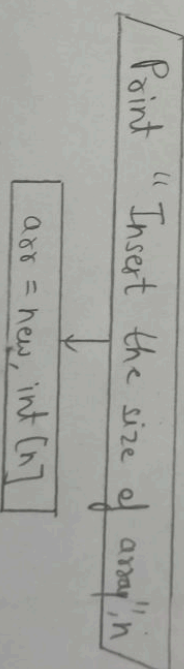 Print "Insert the size of array", n
arr = new, int [n]